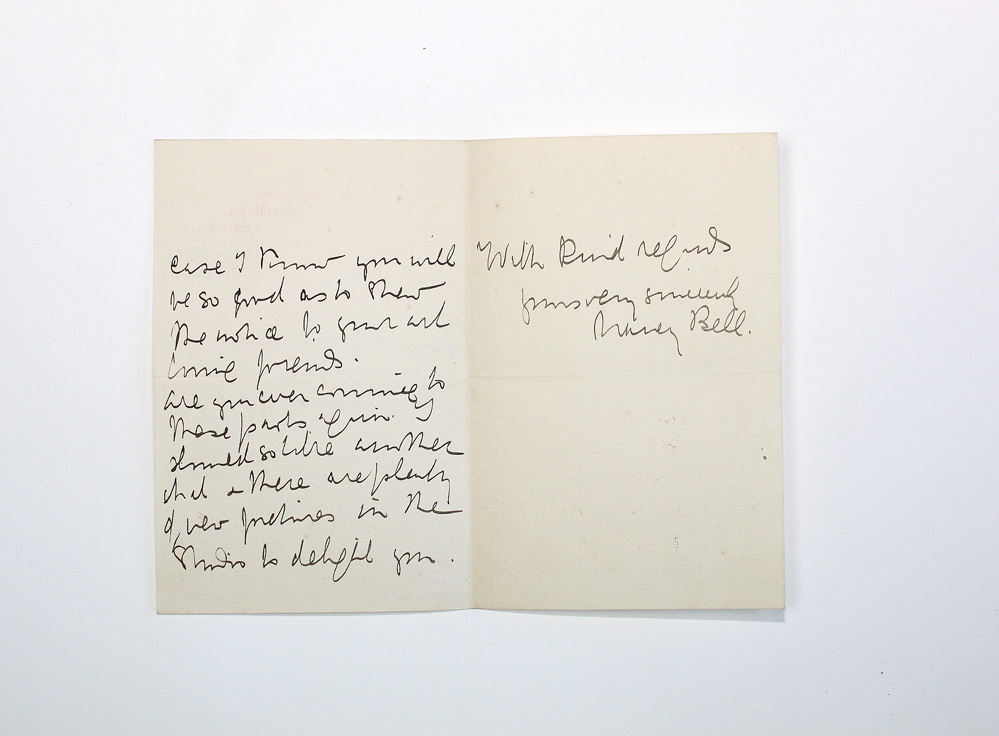 case I know you will
be so good as to shew
the notice to your art
loving friends.
are you ever coming to
these parts again I
should so like another
chat & there are plenty
of new pictures in the
Studio to delight you.
With kind regards
yours very sincerely
Nancy Bell.